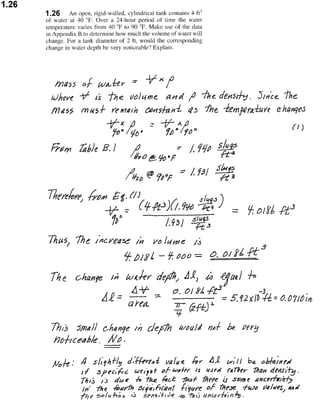 1.26
1.26 An open, rigid-walled, cylindrical tank contains 4 ft³
of water at 40 °F. Over a 24-hour period of time the water
temperature varies from 40 °F to 90 °F. Make use of the data
in Appendix B to determine how much the volume of water will
change. For a tank diameter of 2 ft, would the corresponding
change in water depth be very noticeable? Explain.
mass of water = V x ρ
where V is the volume and ρ the density. Since the
mass must remain constant as the temperature changes
V40° x ρ40° = V90° x ρ90° (1)
From Table B.1 ρH2O @ 40°F = 1.940 slugs/ft³
ρH2O @ 90°F = 1.931 slugs/ft³
Therefore, from Eq.(1)
V90° = (4 ft³)(1.940 slugs/ft³) / 1.931 slugs/ft³ = 4.0186 ft³
Thus, the increase in volume is
4.0186 - 4.000 = 0.0186 ft³
The change in water depth, Δl, is equal to
Δl = ΔV/area = 0.0186 ft³ / π/4 (2ft)² = 5.92x10⁻³ ft = 0.0710 in.
This small change in depth would not be very
noticeable. No.
Note: A slightly different value for Δl will be obtained
if specific weight of water is used rather than density.
This is due to the fact that there is some uncertainty
in the fourth significant figure of these two values, and
the solution is sensitive to this uncertainty.